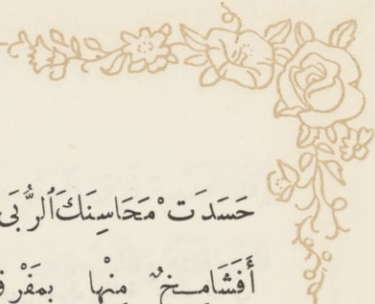 حَسَدَتْ مَحَاسِنَكَ ٱلرُّبَى
أَفَشَامِخٌ مِنْهَا بِمَفْرِ